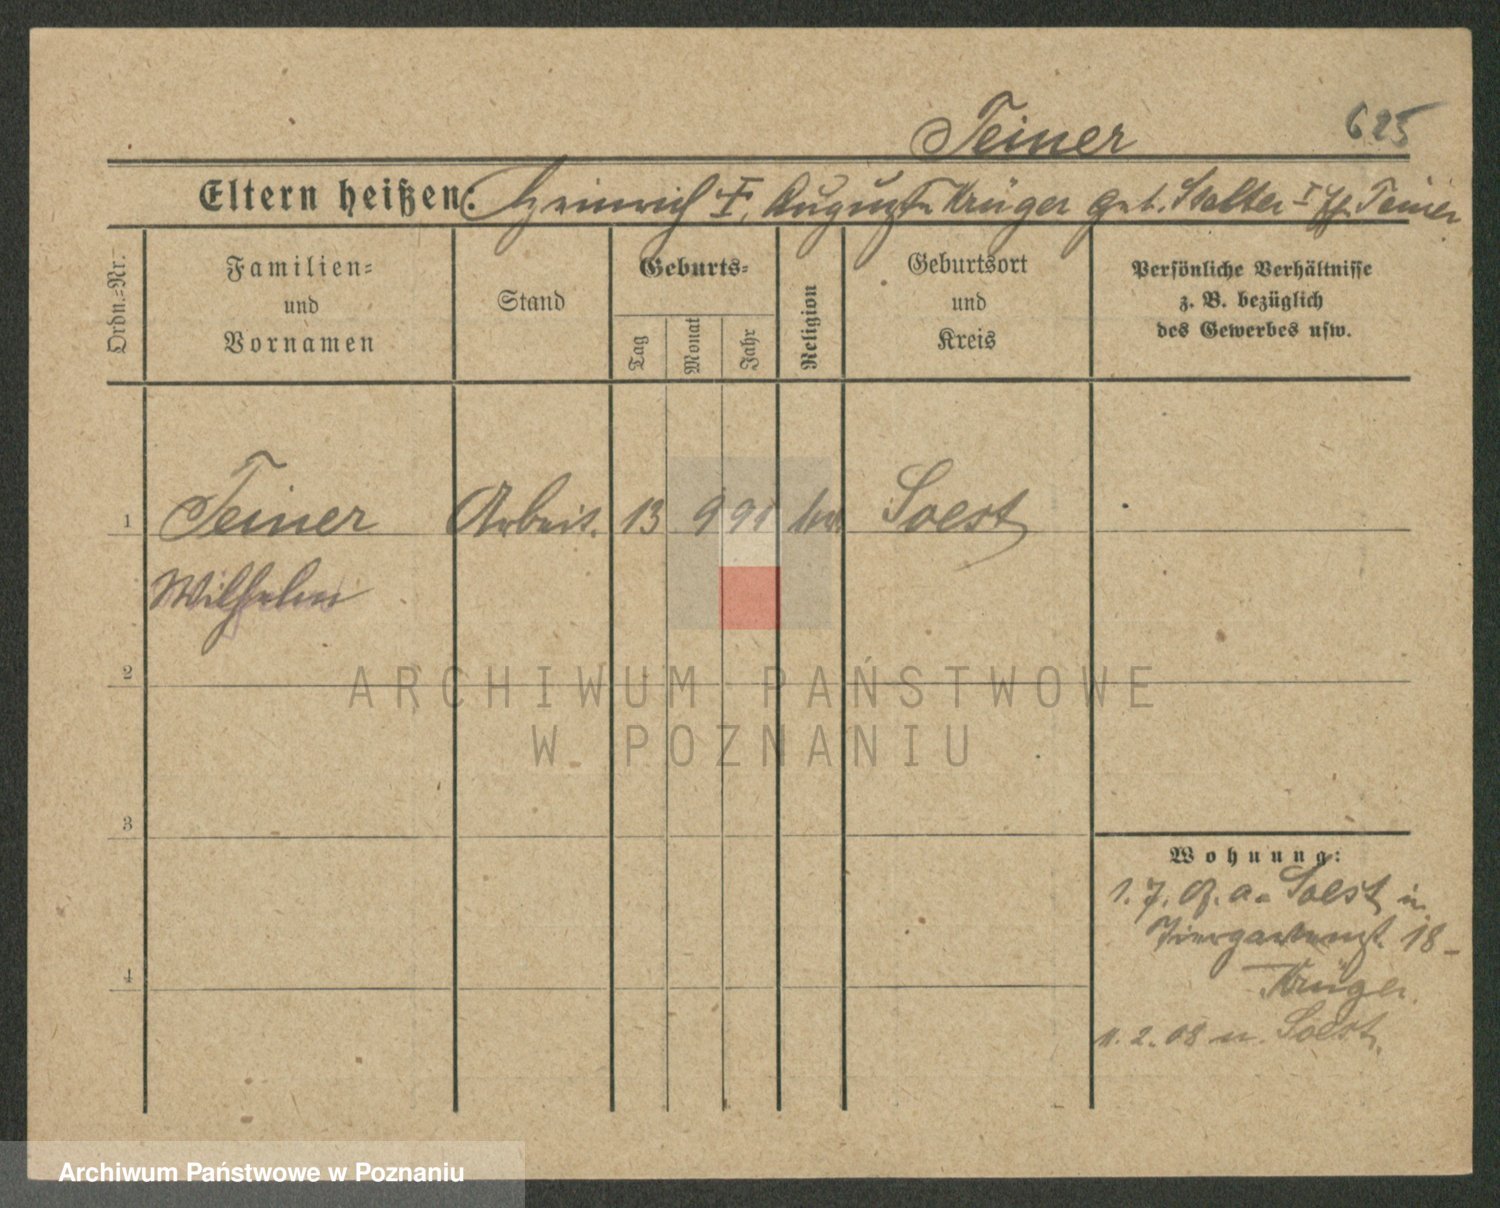 Teiner 625
Eltern heißen: Heinrich †, Auguste Krüger geb. Stolter I Teiner
Ordn.=Nr.
Familien=
und
Vornamen
Stand
Geburts=
Tag
Monat
Jahr
Religion
Geburtsort
und
Kreis
Persönliche Verhältnisse
z. B. bezüglich
des Gewerbes usw.
1 Teiner Arbeit. 13 9 91 Soest
Wilhelm
2
3
4
Wohnung:
1. 7. 07. a. Soest, in
Tiergartenst. 18-
Krüger.
11. 2. 08 n. Soest.
ARCHIWUM PAŃSTWOWE
W POZNANIU
Archiwum Państwowe w Poznaniu